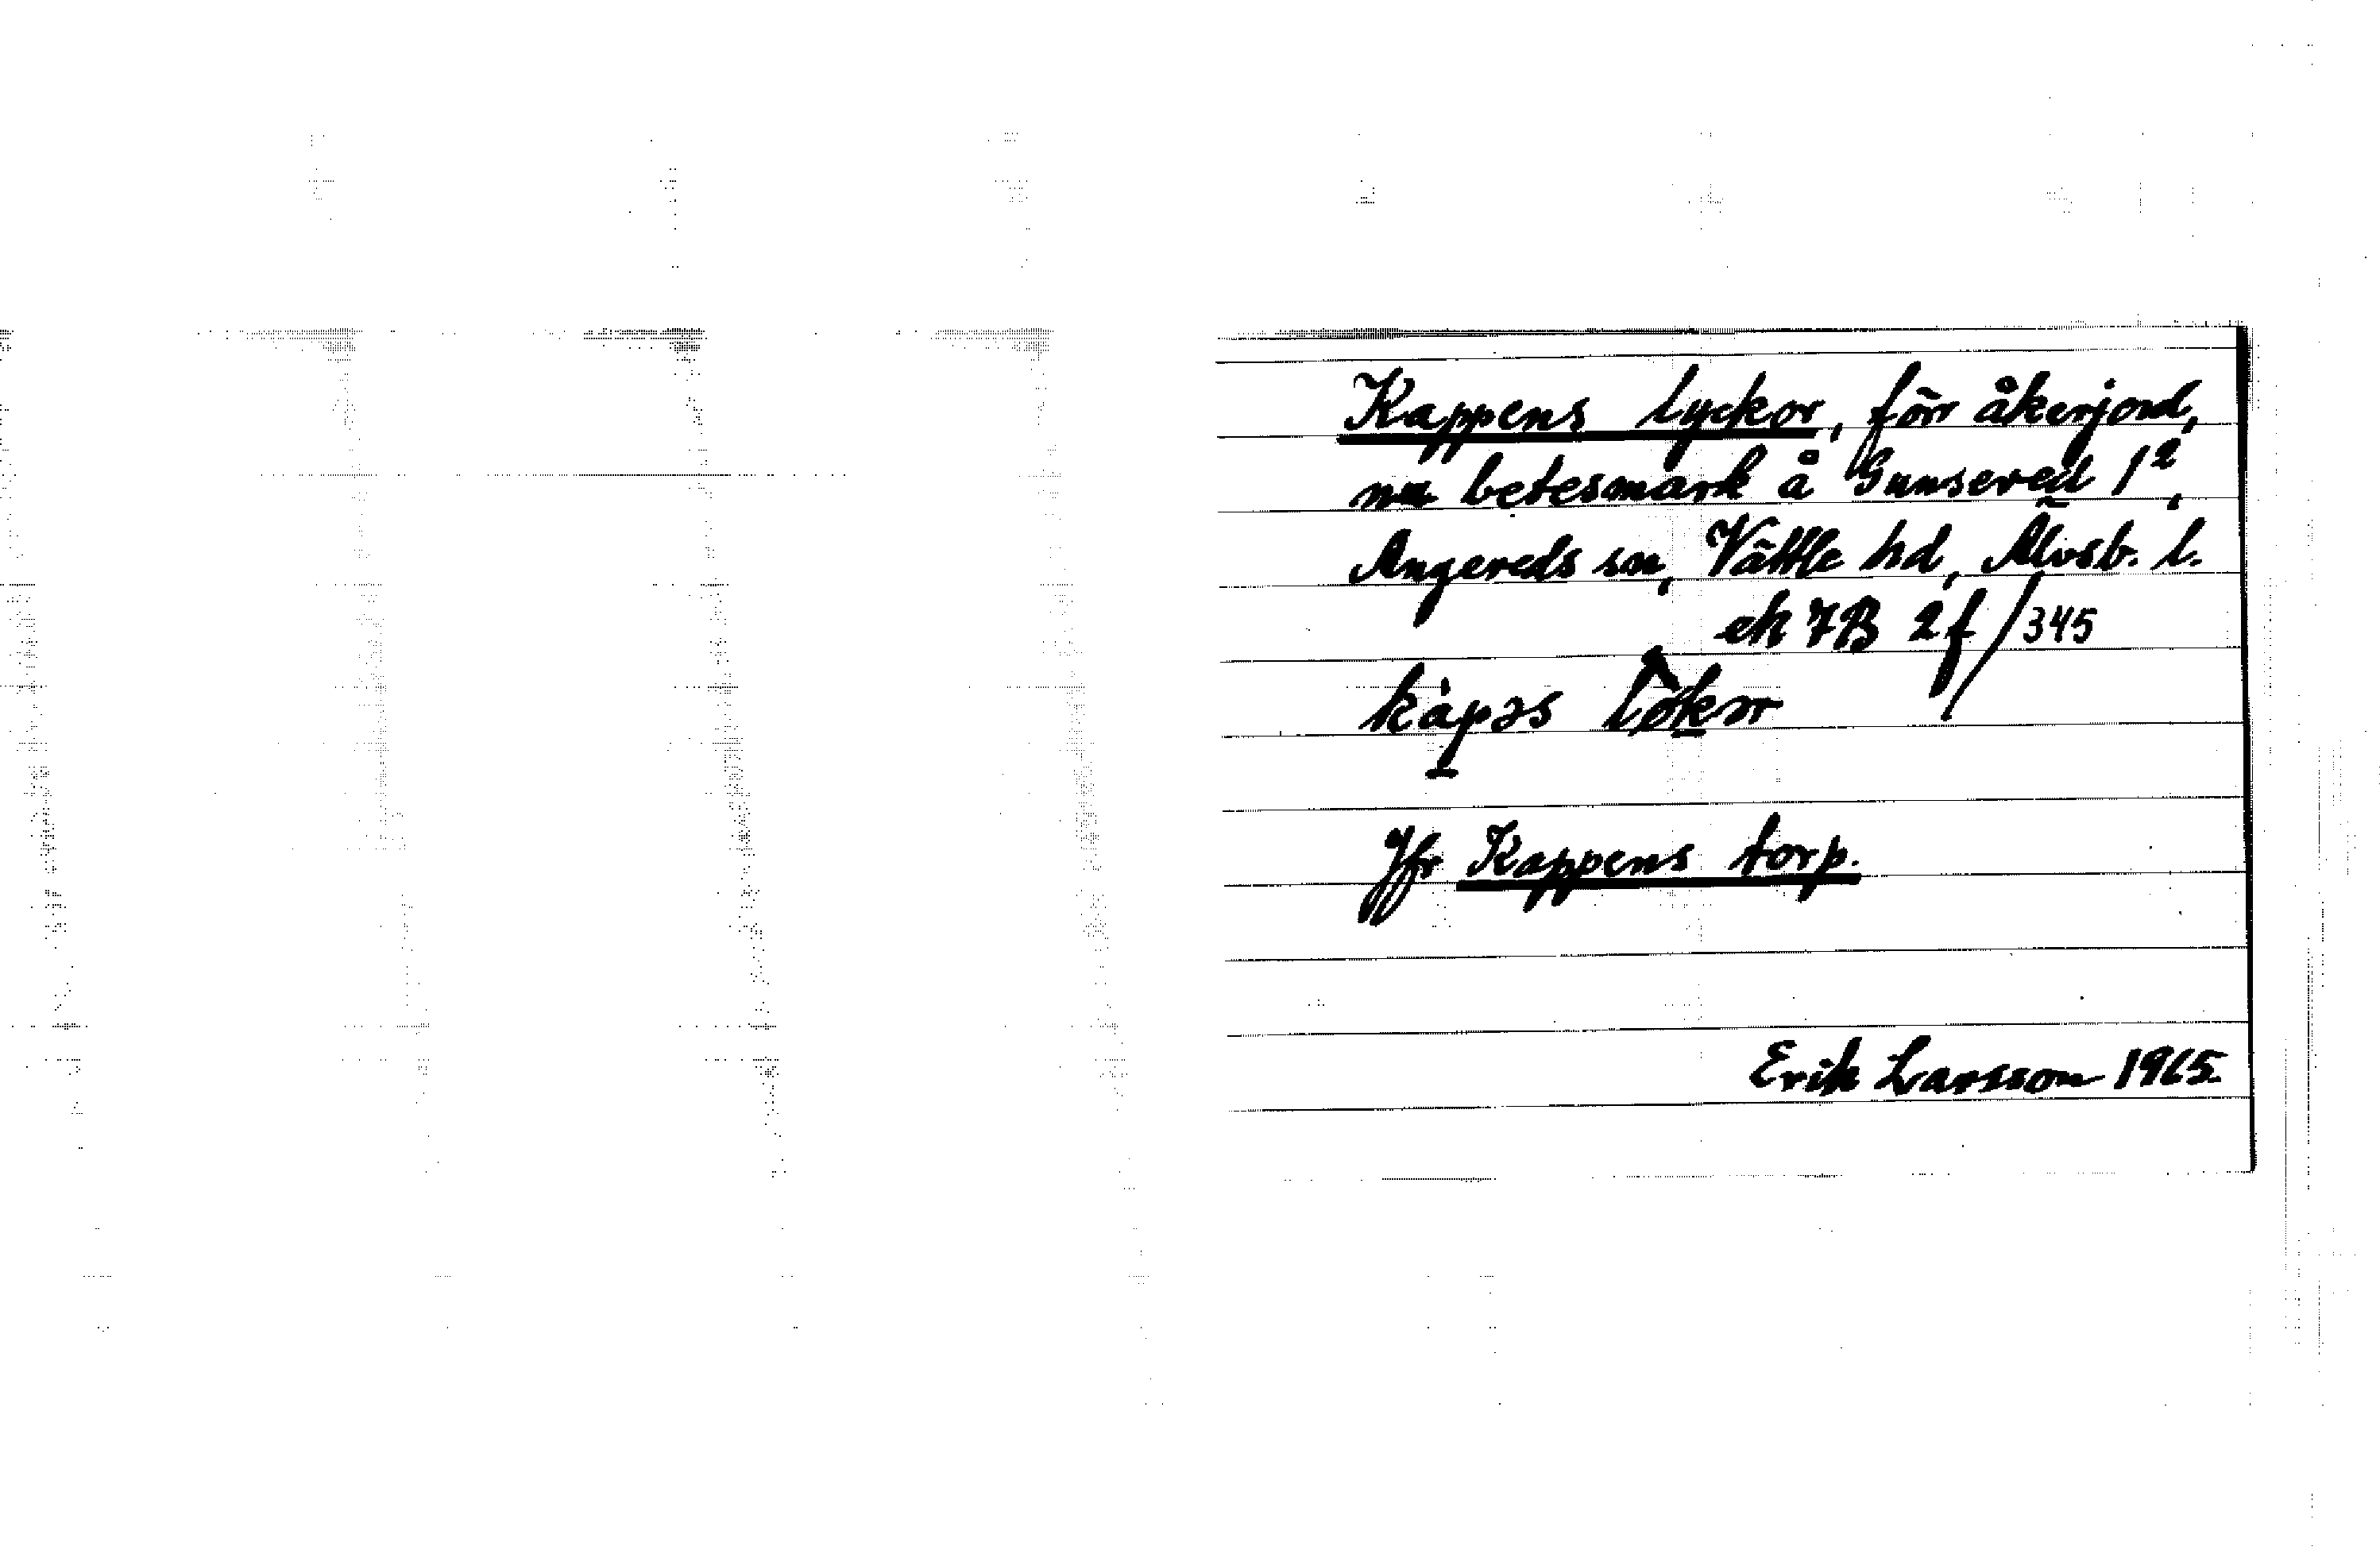 Kappens lyckor, förr åkerjord,
nu betesmark å Gunsered 1²,
Angereds sn, Vättle hd, Älvsb. l.
ek 7B 2f/345
kàpəs
Jfr Kappens torp.
Erik Larsson 1965.